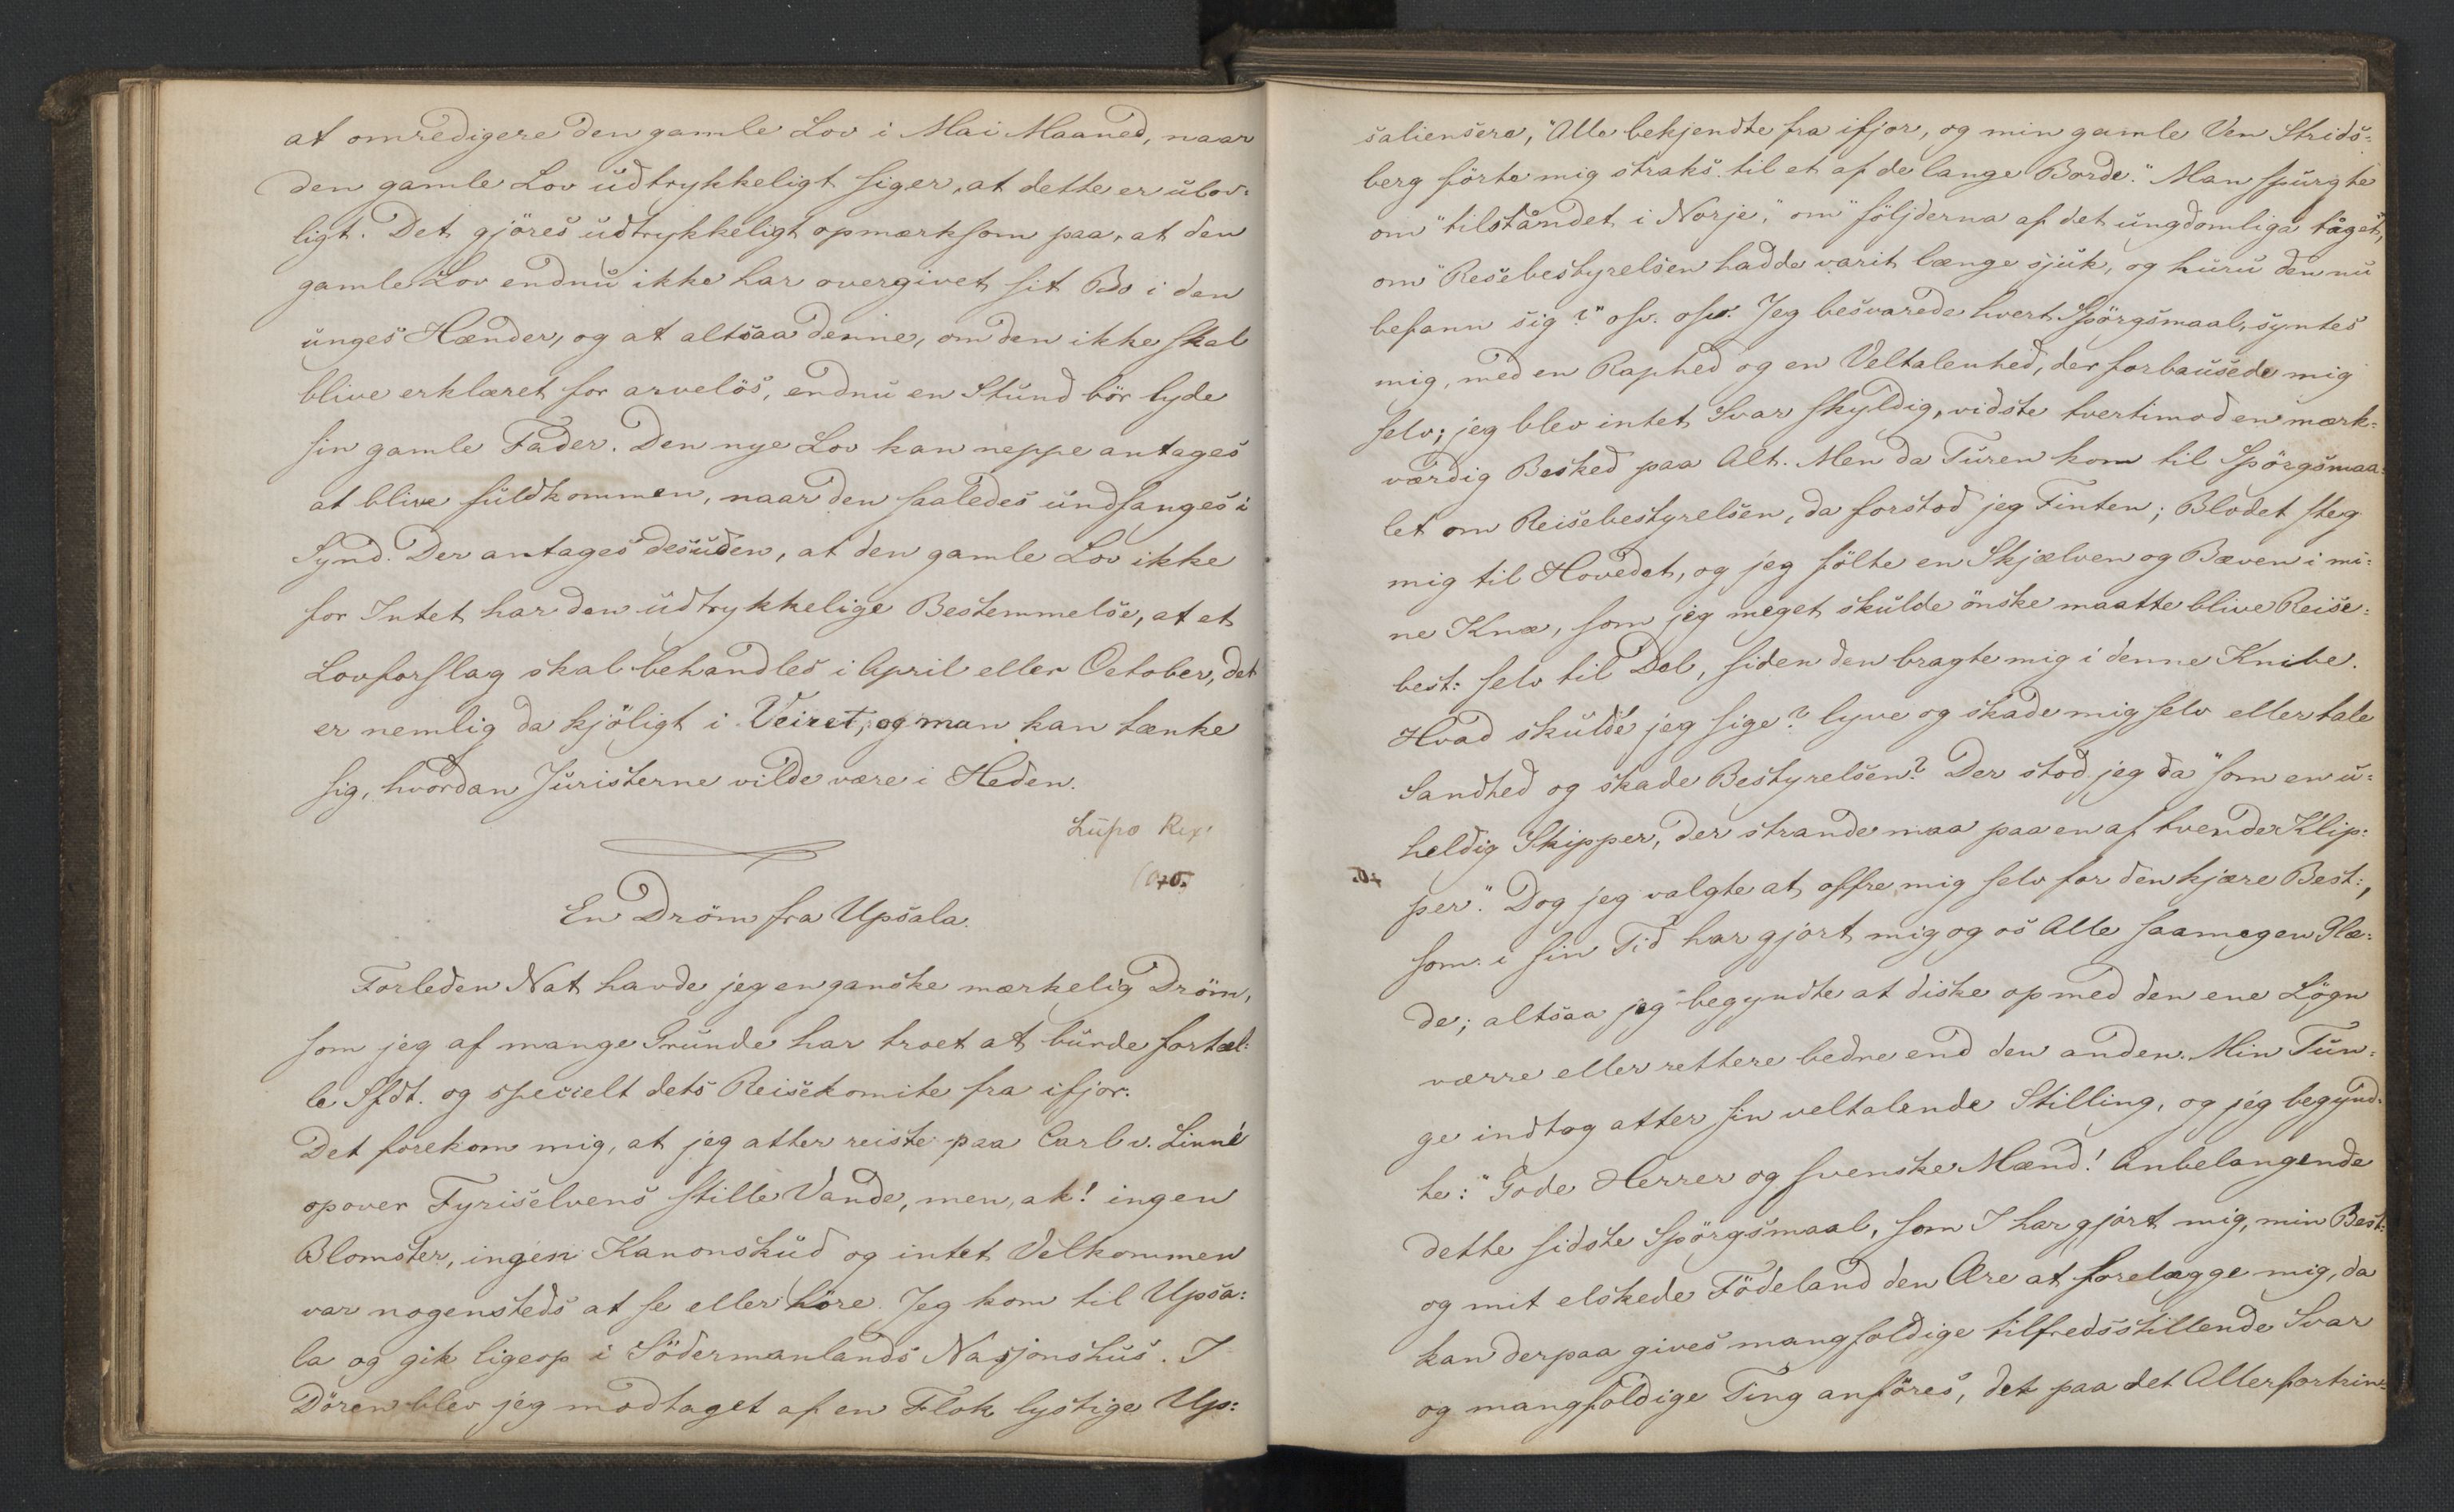 at omredigere den gamle Lov i Mai Maaned, naar
den gamle Lov udtrykkeligt siger, at dette er ulov-
ligt. Det gjöres udtrykkeligt opmærksom paa, at den
gamle Lov endnu ikke har overgivet sit Bo i den
unges Hænder, og at altsaa denne, om den ikke skal
blive erklæret for arvelös, endnu en Stund bör lyde
sin gamle Fader. Den nye Lov kan neppe antages
at blive fuldkommen, naar den saaledes undfanges i
Synd. Der antages desuden, at den gamle Lov ikke
for Intet har den udtrykkelige Bestemmelse, at et
Lovforslag skal behandles i April eller October, det
er nemlig da kjöligt i Veiret, og man kan tænke
sig, hvordan Juristerne vilde være i Heden.
Lupo Rex
En Dröm fra Upsala.
Forleden Nat havde jeg en ganske mærkelig Dröm,
som jeg af mange Grunde har troet at burde fortæl-
le Sfdt. og specielt dets Reisekomite fra ifjor.
Det forekom mig, at jeg atter reiste paa Carl v. Linné
opover Fyriselvens stille Vande, men, ak! ingen
Blomster, ingen Kanonskud og intet Velkommen
var nogensteds at se eller höre. Jeg kom til Upsa-
la og gik ligeop i Södermanlands Nasjonshus. I
Dören blev jeg modtaget af en Flok lystige Up-
saliensere, "Alle bekjendte fra ifjor, og min gamle Ven Strids-
berg förte mig straks til et af de lange Borde." Man spurgte
om "tilståndet i Norje," om "följderna af det ungdomliga tåget,
om "Resebestyrelsen hadde varit længe sjuk, og huru den nu
befann sig?" osv. osv. Jeg besvarede hvert Spörgsmaal, syntes
mig, med en Raphed og en Veltalenhed, der forbausede mig
selv; jeg blev intet Svar skyldig, vidste tvertimod en mærk-
værdig Besked paa Alt. Men da Turen kom til Spörgsmaa-
let om Reisebestyrelsen, da forstod jeg Finten; Blodet steg
mig til Hovedet, og jeg fölte en Skjælven og Bæven i mi-
ne Knæ, som jeg meget skulde önske maatte blive Reise-
best: selv til Del, siden den bragte mig i denne Knibe.
Hvad skulde jeg sige? lyve og skade mig selv eller tale
Sandhed og skade Bestyrelsen? Der stod jeg da "som en u-
heldig Skipper, der strande maa paa en af tvende Klip-
per." Dog jeg valgte at offre mig selv for den kjære Best:,
som i sin Tid har gjort mig og os Alle saamegen Glæ-
de; altsaa jeg begyndte at diske op med den ene Lögn
værre eller rettere bedre end den anden. Min Tun-
ge indtog atter sin veltalende Stilling, og jeg begynd-
te: "Gode Herrer og svenske Mænd! Anbelangende
dette sidste Spörgsmaal, som I har gjört mig, min Best:
og mit elskede Födeland den Ære at forelægge mig, da
kan derpaa gives mangfoldige tilfredsstillende Svar
og mangfoldige Ting anföres, det paa det Allerfortrin-